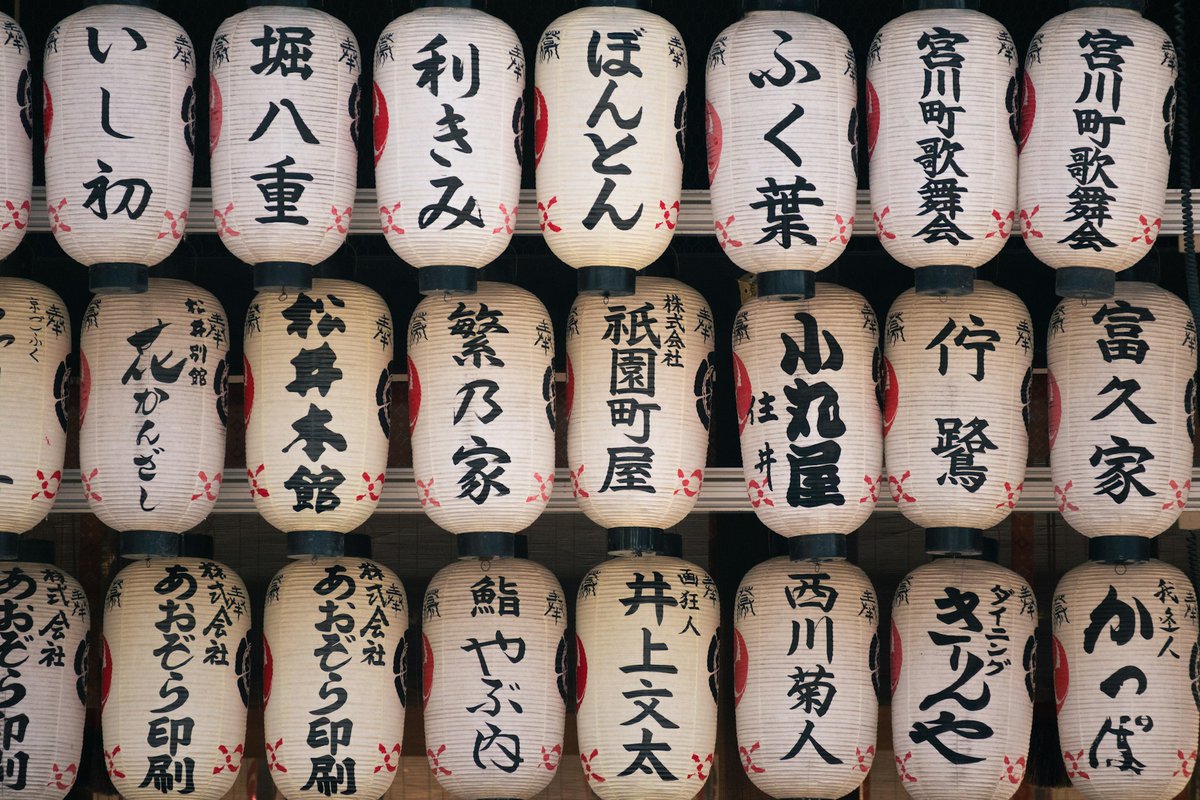 いし初
堀八重
利きみ
ぼんとん
ふく葉
宮川町歌舞会
宮川町歌舞会
京つごふく
松井別館
花かんざし
松井本館
繁乃家
株式会社
祇園町屋
小丸屋
住井
佇鷺
富久家
株式会社
あおぞら印刷
株式会社
あおぞら印刷
株式会社
あおぞら印刷
鮨やぶ内
画狂人
井上文太
西川菊人
ダイニング
きーんや
我逢人
かっぽ